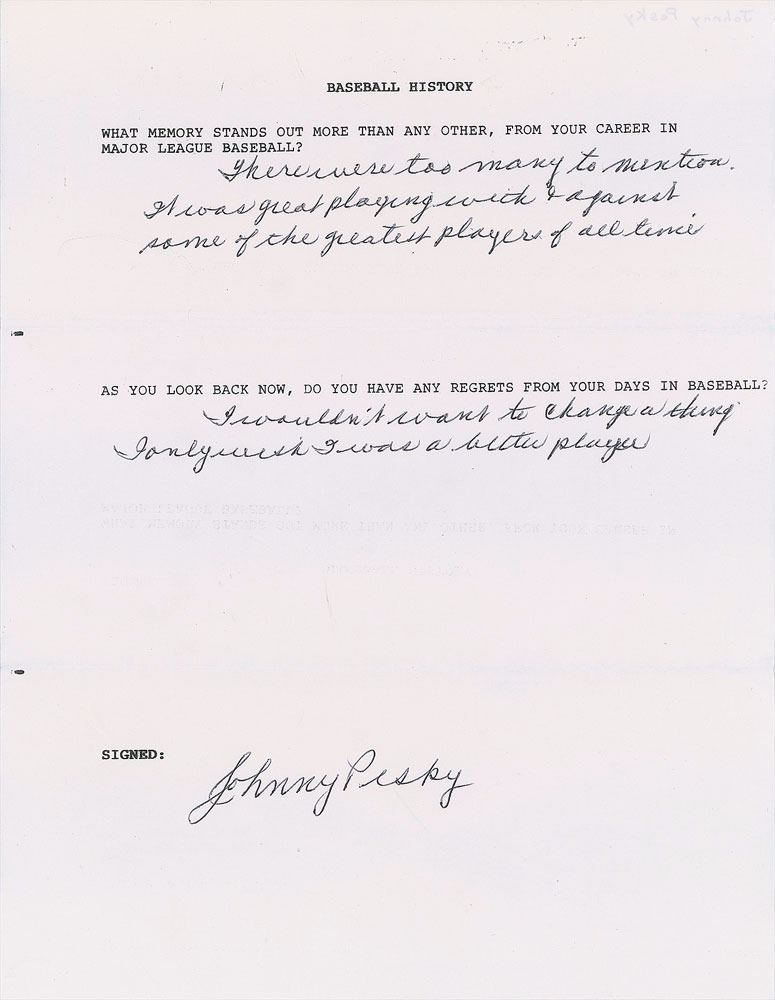 Johnny Pesky
BASEBALL HISTORY
WHAT MEMORY STANDS OUT MORE THAN ANY OTHER, FROM YOUR CAREER IN
MAJOR LEAGUE BASEBALL?
There were too many to mention.
It was great playing with & against
some of the greatest players of all time
AS YOU LOOK BACK NOW, DO YOU HAVE ANY REGRETS FROM YOUR DAYS IN BASEBALL?
I wouldn't want to change a thing
I only wish I was a better player
SIGNED:
Johnny Pesky